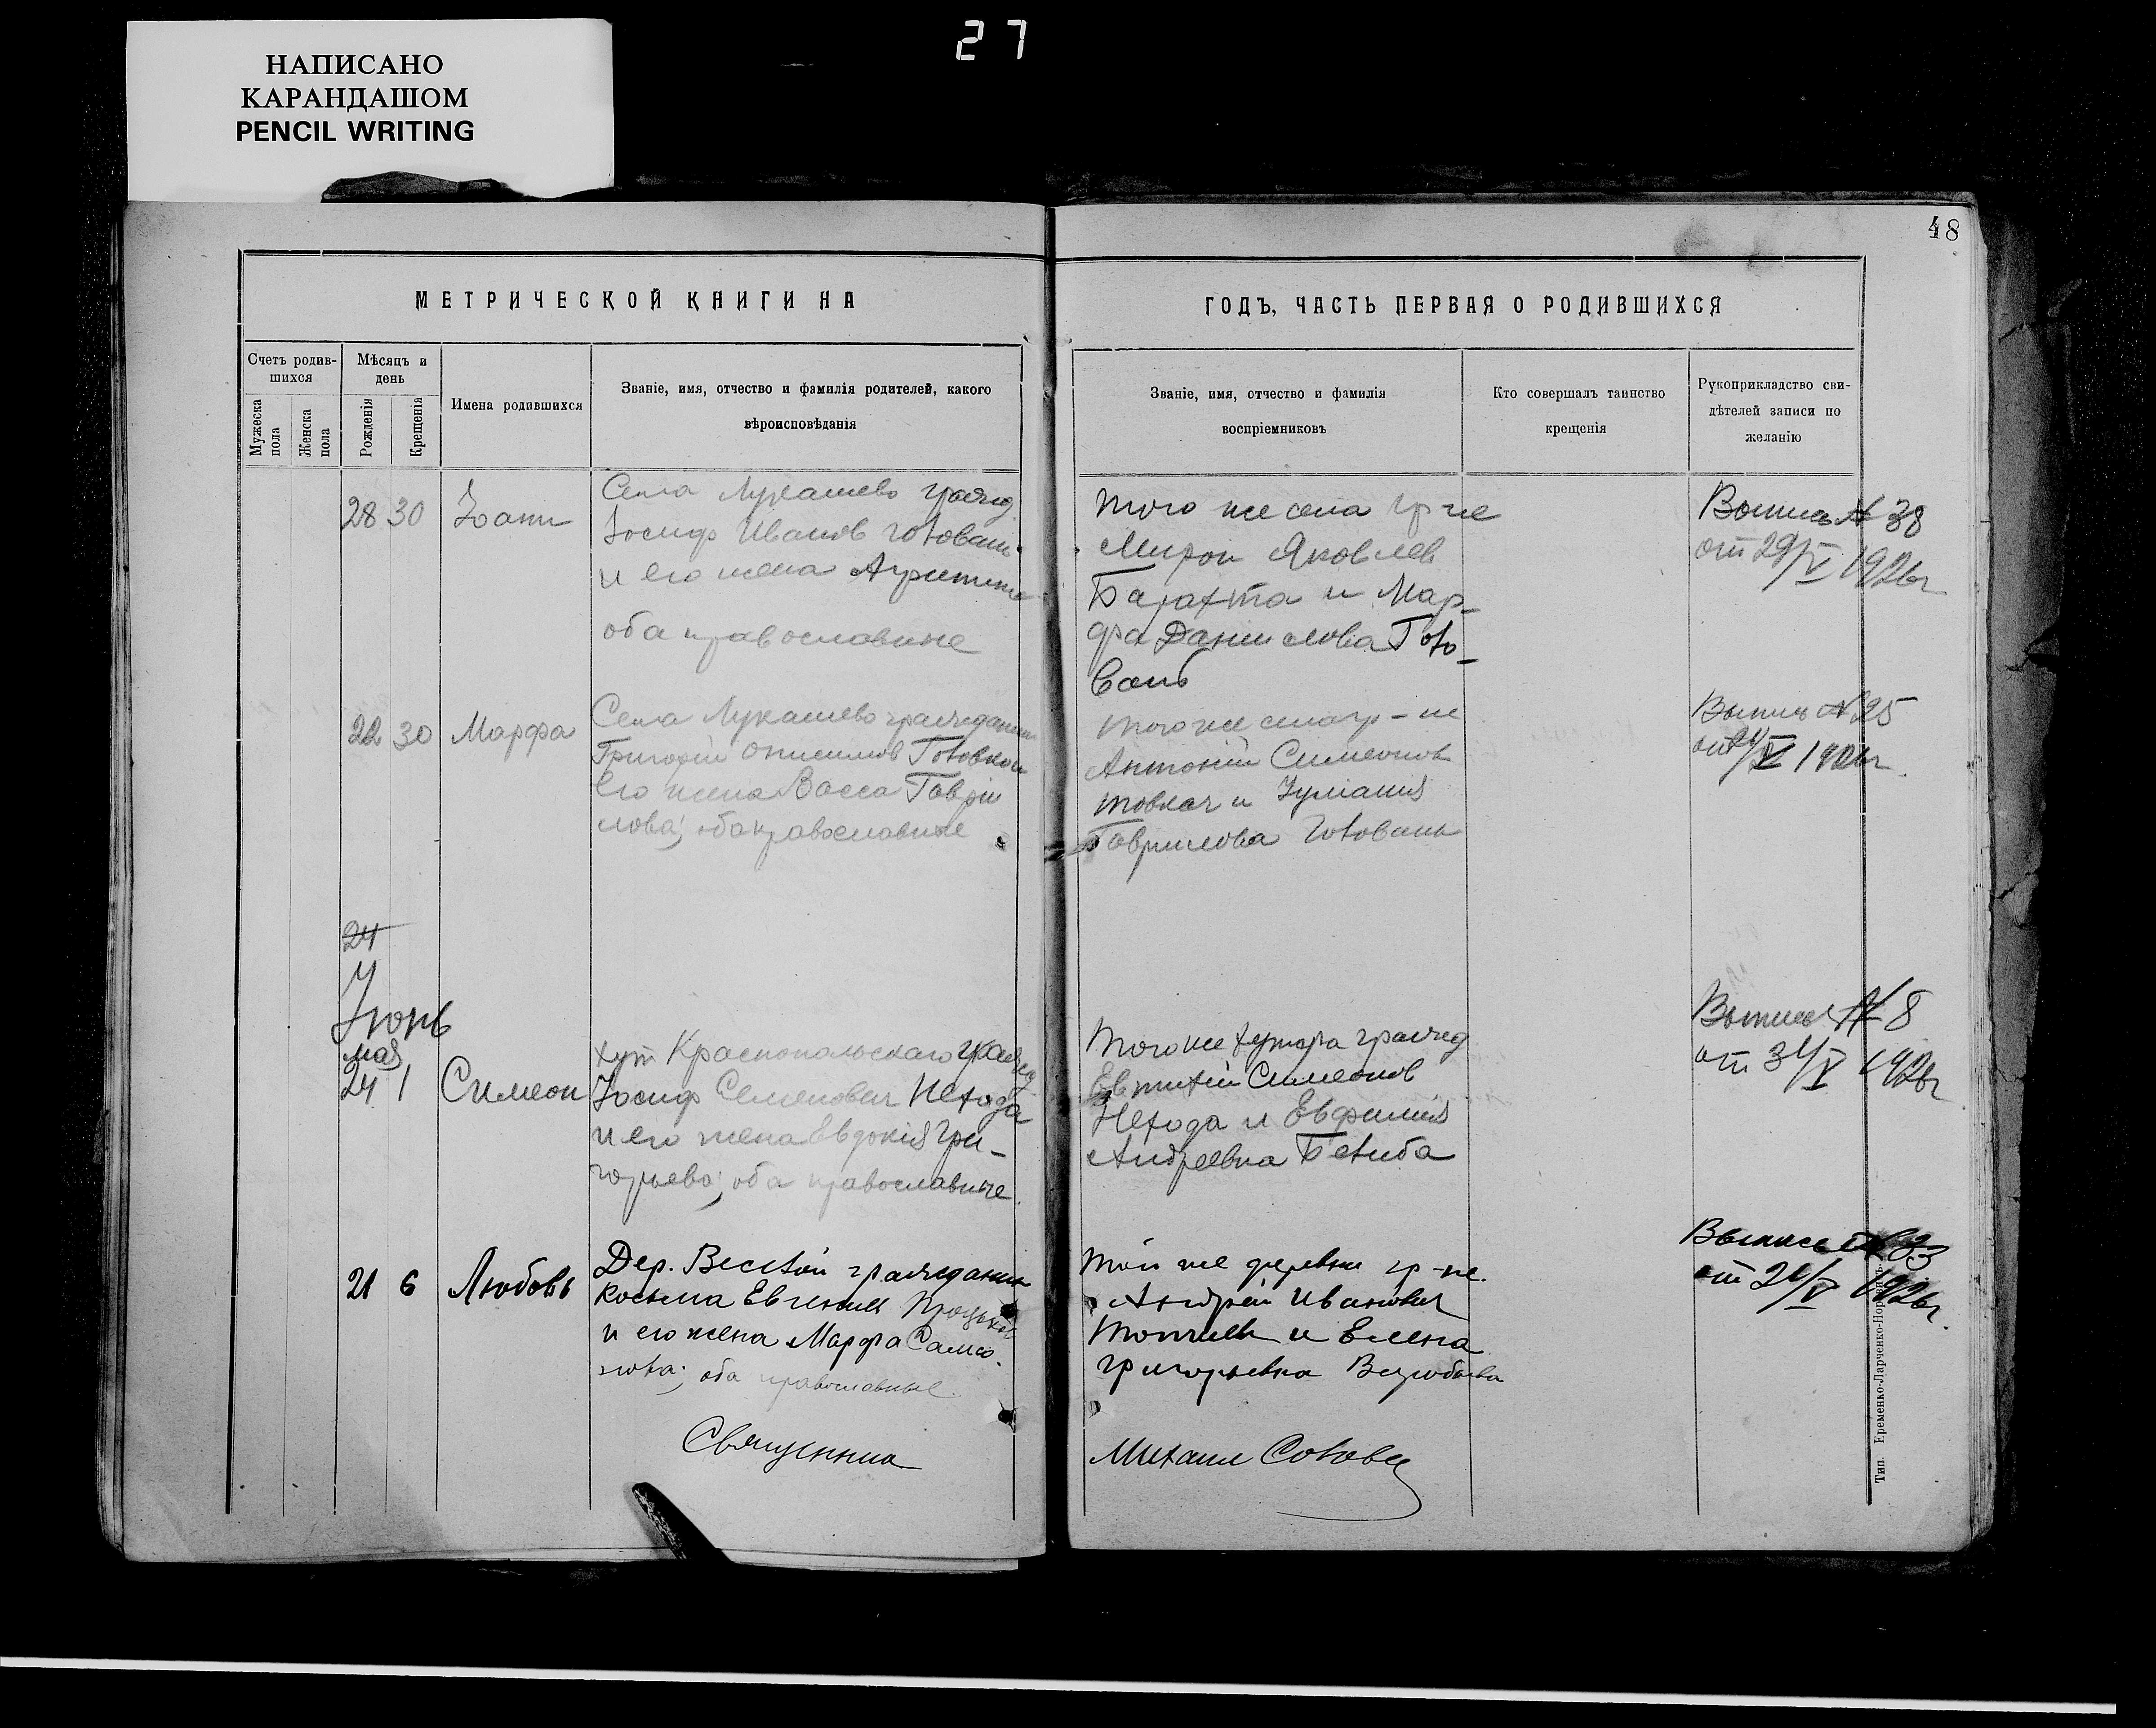 НАПИСАНО
КАРАНДАШОМ
PENCIL WRITING
27
48
МЕТРИЧЕСКОЙ КНИГИ НА
ГОДЪ, ЧАСТЬ ПЕРВАЯ О РОДИВШИХСЯ
Счетъ родив-
шихся
Мужеска пола
Женска пола
Мѣсяцъ и
день
Рожденія
Крещенія
Имена родившихся
Званіе, имя, отчество и фамилія родителей, какого
вѣроисповѣданія
Званіе, имя, отчество и фамилія
воспріемниковъ
Кто совершалъ таинство
крещенія
Рукоприкладство сви-
дѣтелей записи по
желанію
28 30 Іоанн
Села Лукашево гражд
Іосиф Иванов
и его жена
оба православные
того же села гр-не
Мирон Яковлев
и Мар-
фа Данилова Гото-
вань
Выпись № 38
от 29/V 1926г
22 30 Марфа
Села Лукашево гражданин
Григорій Онисимов
его жена Васса Гаврі
лова; оба православные
того же села гр-не
Антоній Симеонов
товкач и Іуліанія
Гаврилова Готовань
Выпись № 25
1926г.
24
Іюнь
мая
24 1 Симеон
хут Краснопольскаго гражд
Іосиф Семенович Нехода
и его жена Евдокія Гри-
горьева; оба православные.
того же хутора гражд
Евтихій Симеонов
Нехода и Евфимія
Андреевна
Выпись № 8
от 1926г
21 6 Любовь
Дер. Веселой гражданин
Косьма Евгеніев
и его жена Марфа Самсо-
нова; оба православные.
той же деревни гр-не.
Андрей Иванович
и Елена
григорьевна
Выпись №
1926г.
Священник
Михаил
Тип. Еременко-Ларченко-Норенко